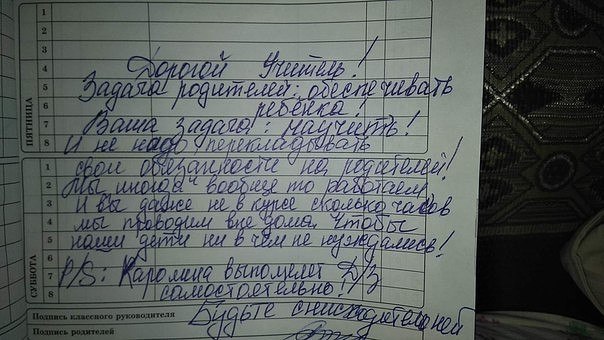 1
2
3
4
5
6
7
8
ПЯТНИЦА
Дорогой Учитель!
Задача родителей: обеспечивать
ребёнка!
Ваша задача: научить!
И не надо перекладывать
1
2
3
4
5
6
7
8
СУББОТА
свои обязанности на родителей!
Мы иногда вообще то работаем,
И вы даже не в курсе сколько часов
мы проводим вне дома. Чтобы
наши дети ни в чём не нуждались!
P/S: Каролина выполняет Д/З
самостоятельно!
Будьте снисходительней
Подпись классного руководителя
Подпись родителей